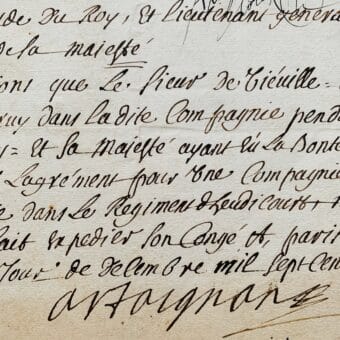 de du Roy, et Lieutenant genera
de sa majesté
ions que Le sieur de Tiéville =
ruy dans la dite Compagnie pend
= Et sa Majesté ayant eü La Bonté
Lagrément pour Une Compagnie
dans Le Regiment d'heudicourt,
fait expedier son Congé et, paris
Jour de decembre mil sept Cen
artaignan